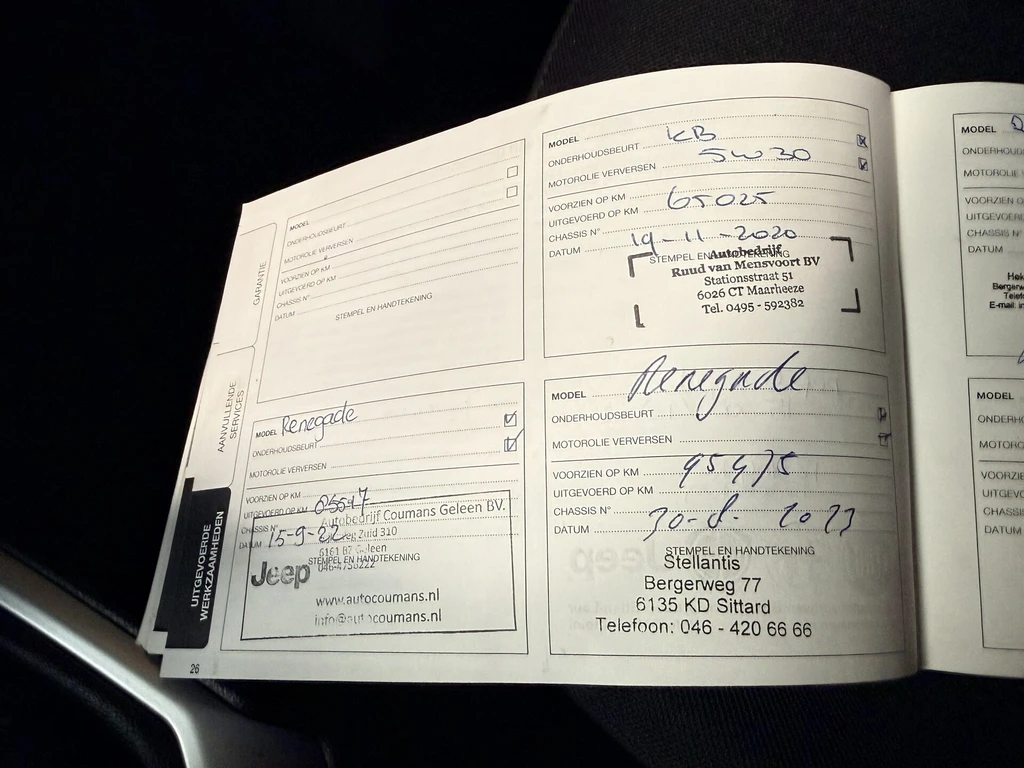 GARANTIE
AANVULLENDE
SERVICES
UITGEVOERDE
WERKZAAMHEDEN
MODEL
ONDERHOUDSBEURT
MOTOROLIE VERVERSEN
VOORZIEN OP KM
UITGEVOERD OP KM
CHASSIS N°
DATUM
STEMPEL EN HANDTEKENING
MODEL KB
ONDERHOUDSBEURT 5W30
MOTOROLIE VERVERSEN
VOORZIEN OP KM 65025
UITGEVOERD OP KM
CHASSIS N°
DATUM 19-11-2020
STEMPEL EN HANDTEKENING
Autobedrijf
Ruud van Mensvoort BV
Stationsstraat 51
6026 CT Maarheeze
Tel. 0495 - 592382
MODEL Renegade
ONDERHOUDSBEURT
MOTOROLIE VERVERSEN
VOORZIEN OP KM
UITGEVOERD OP KM
CHASSIS N°
DATUM 15-9-22
STEMPEL EN HANDTEKENING
Autobedrijf Coumans Geleen BV.
Zuid 310
6161 BZ Geleen
Jeep
www.autocoumans.nl
info@autocoumans.nl
MODEL Renegade
ONDERHOUDSBEURT
MOTOROLIE VERVERSEN
VOORZIEN OP KM 95475
UITGEVOERD OP KM
CHASSIS N°
DATUM 30-8-2023
STEMPEL EN HANDTEKENING
Stellantis
Bergerweg 77
6135 KD Sittard
Telefoon: 046 - 420 66 66
26
MODEL
ONDERHOUD
MOTOROLIE
VOORZIEN
UITGEVOERD
CHASSIS N°
DATUM
MODEL
ONDERH
MOTORO
VOORZI
UITGEV
CHASSI
DATUM